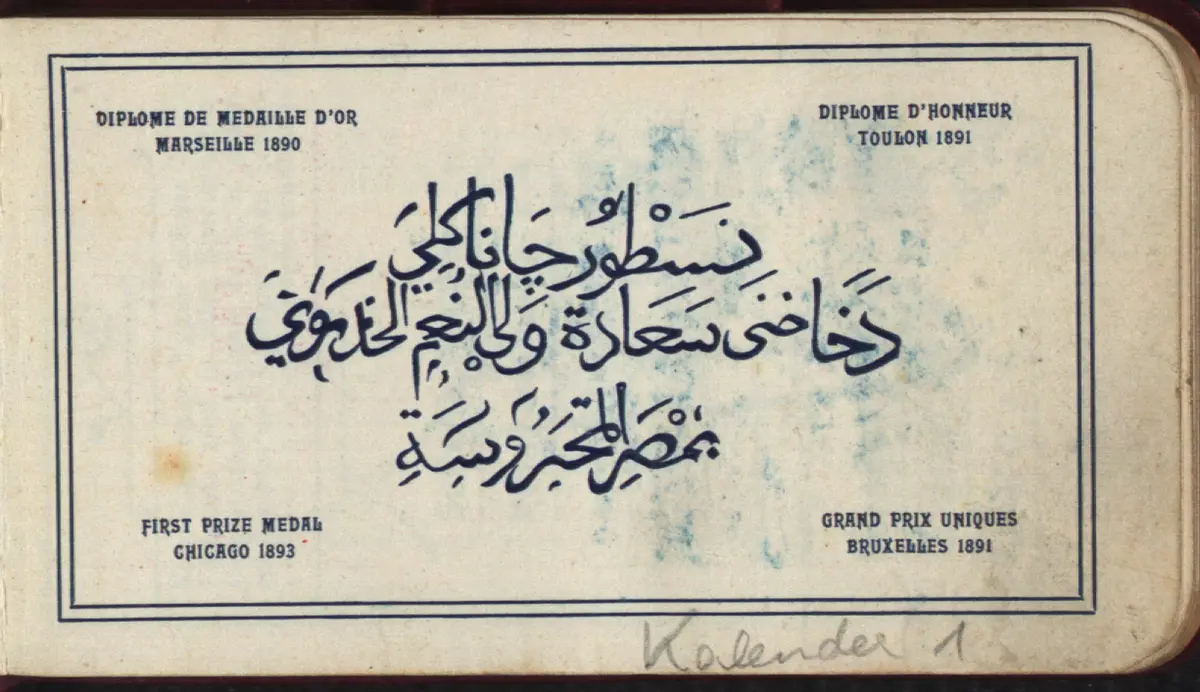 DIPLOME DE MEDAILLE D'OR
MARSEILLE 1890
DIPLOME D'HONNEUR
TOULON 1891
نسطور چاناكلي
دخاخني سعادة ولي النعم الخديوي
بمصر المحروسة
FIRST PRIZE MEDAL
CHICAGO 1893
GRAND PRIX UNIQUES
BRUXELLES 1891
Kalender 1